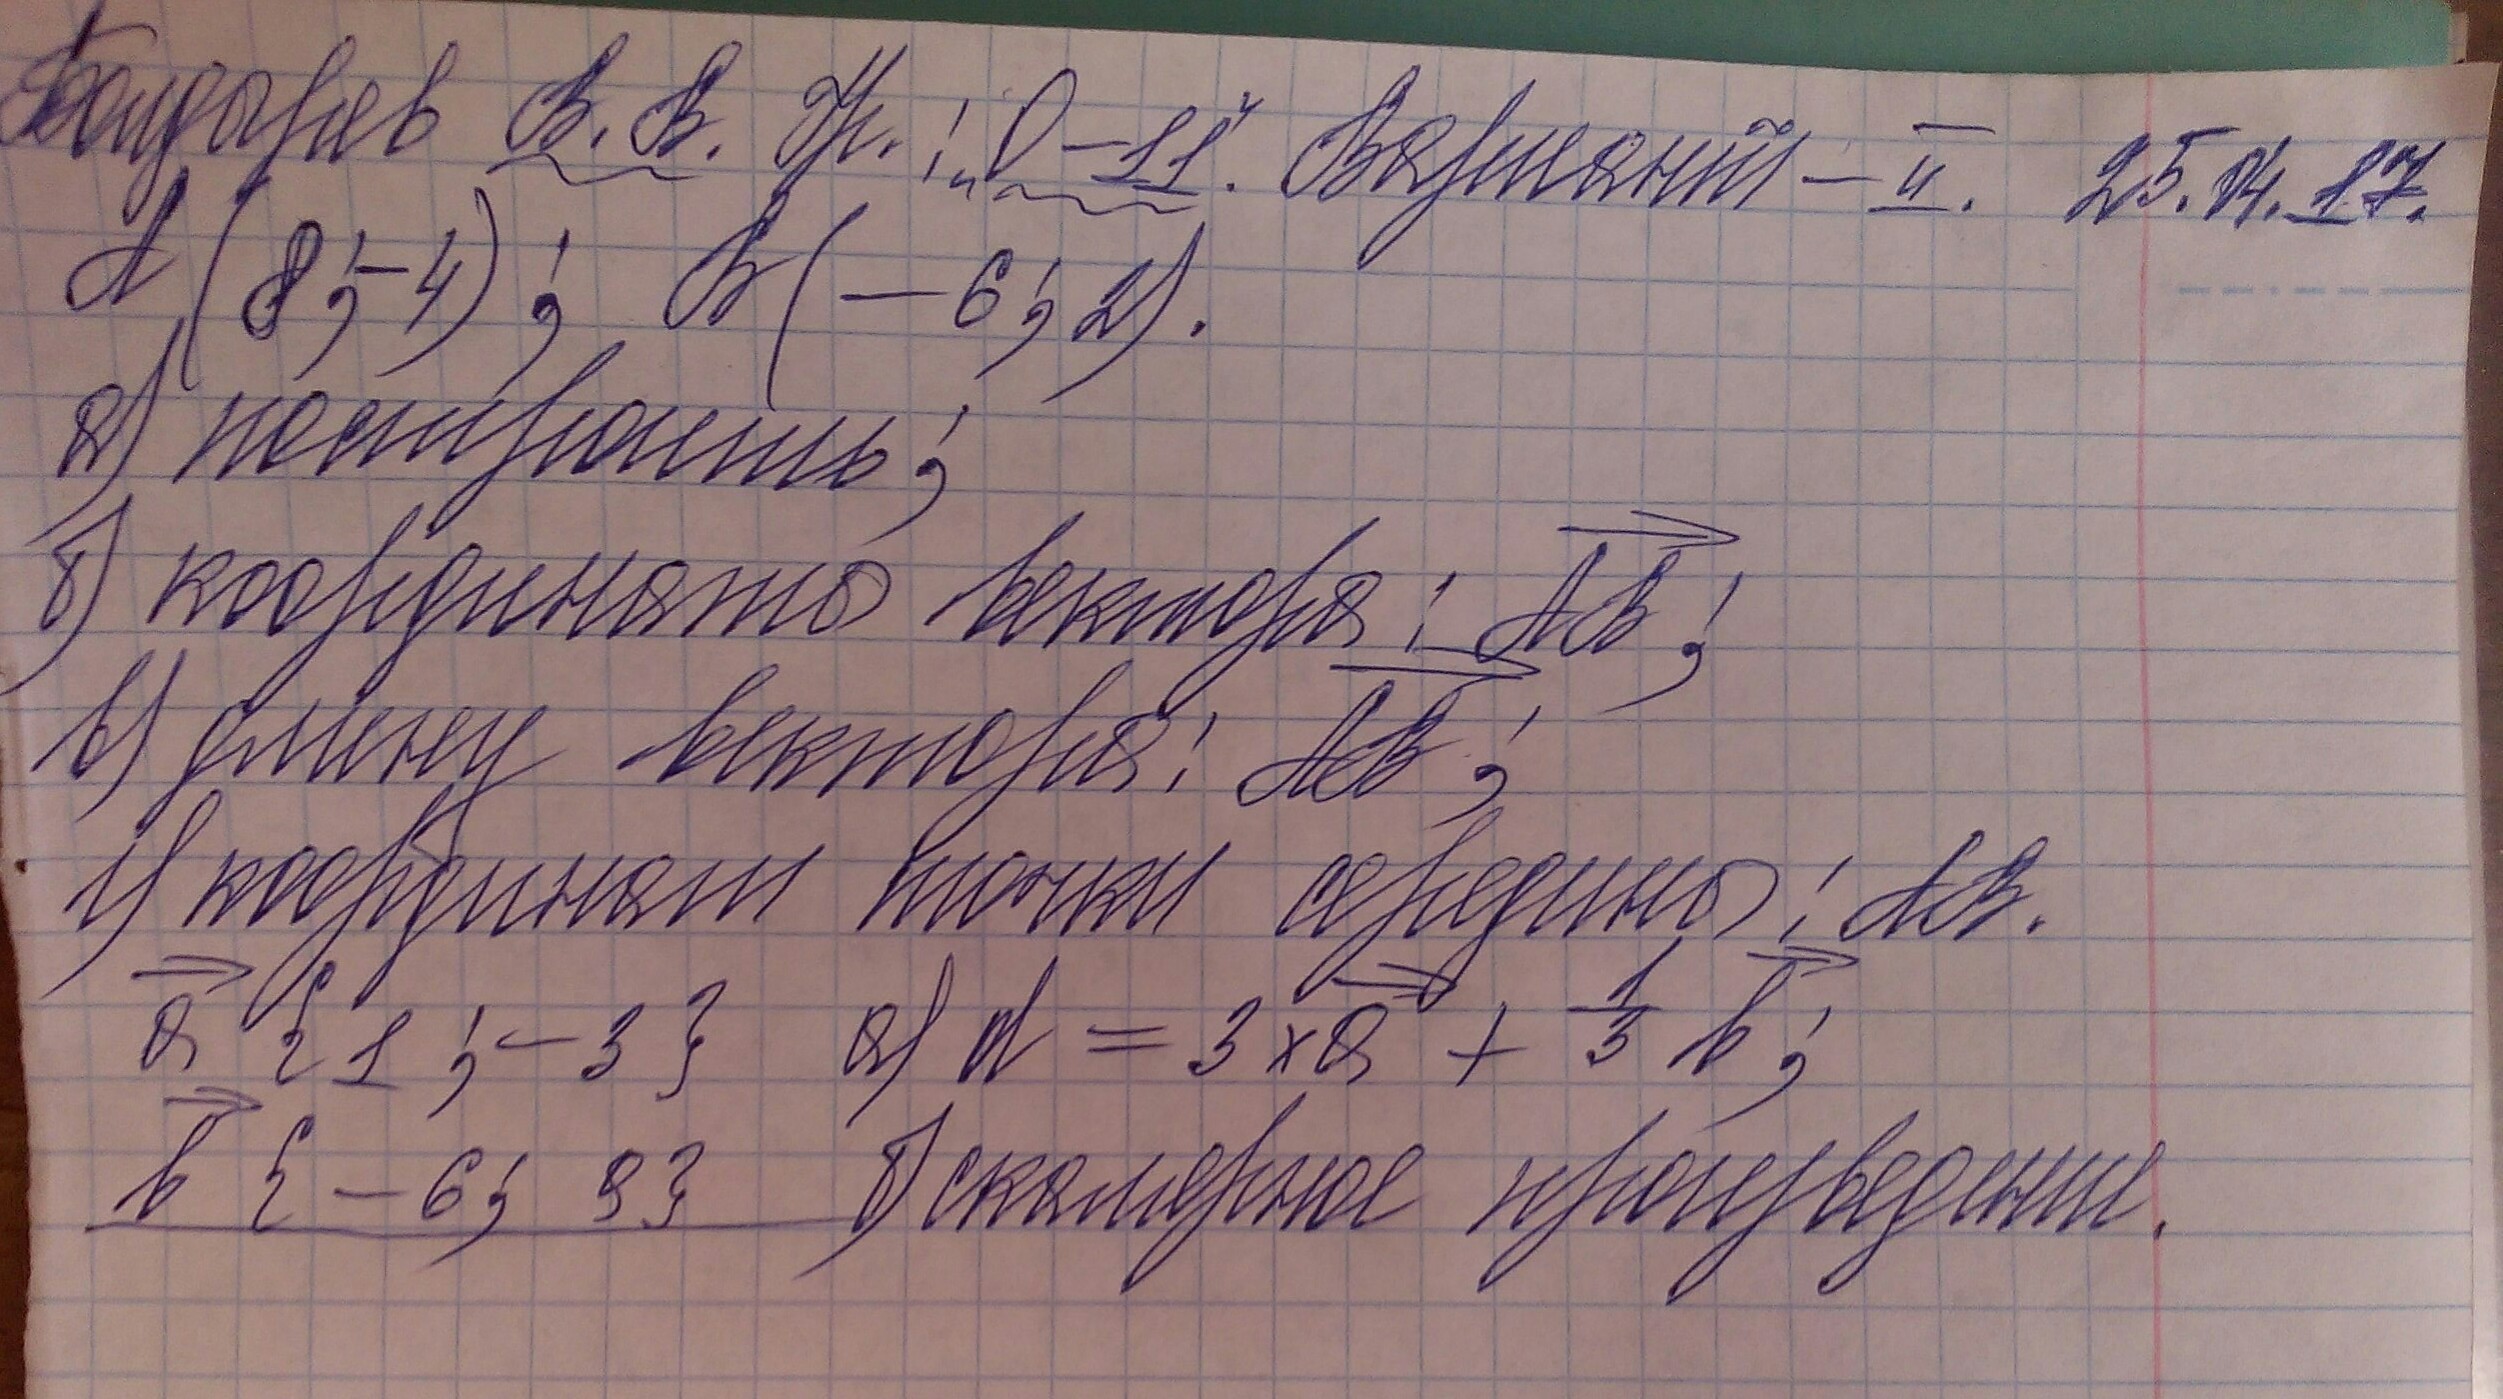 Болдарев В. В. Гр.: "О-11". Вариант - II. 25.04.17.
A (8; -4); B (-6; 2).
а) построить;
б) координаты вектора: AB;
в) длину вектора: AB;
г) координат точки середины: AB.
a {1; -3} а) d = 3 × a + 1/3 b;
b {-6; 9} б) скалярное произведении.